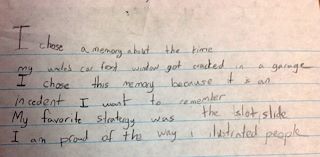 I chose a memory about the time
my uncles car front window got cracked in a garage
I chose this memory because it is an
incedent I want to remember
My favorite strategy was the slot slide
I am proud of the way i ilustrated people